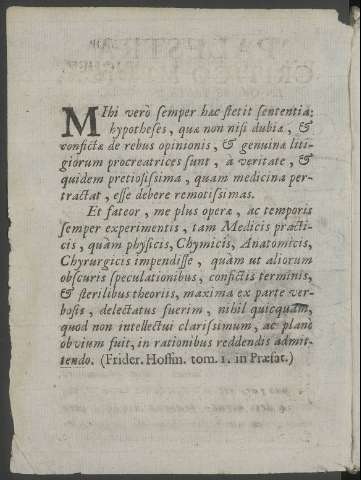 MIhi verò ſemper hæc ſtetit ſententia:
hypotheſes, quæ non niſi dubiæ, &
confictæ de rebus opinionis, & genuinæ liti-
giorum procreatrices ſunt, à veritate, &
quidem pretioſiſſima, quam medicina per-
tractat, eſſe debere remotiſſimas.
Et fateor, me plus operæ, ac temporis
ſemper experimentis, tam Medicis practi-
cis, quàm phyſicis, Chymicis, Anatomicis,
Chyrurgicis impendiſſe, quàm ut aliorum
obſcuris ſpeculationibus, confictis terminis,
& ſterilibus theoriis, maxima ex parte ver-
boſis, delectatus fuerim, nihil quicquam,
quod non intellectui clariſſimum, ac planè
obvium fuit, in rationibus reddendis admit-
tendo. (Frider. Hoffm. tom. 1. in Præfat.)